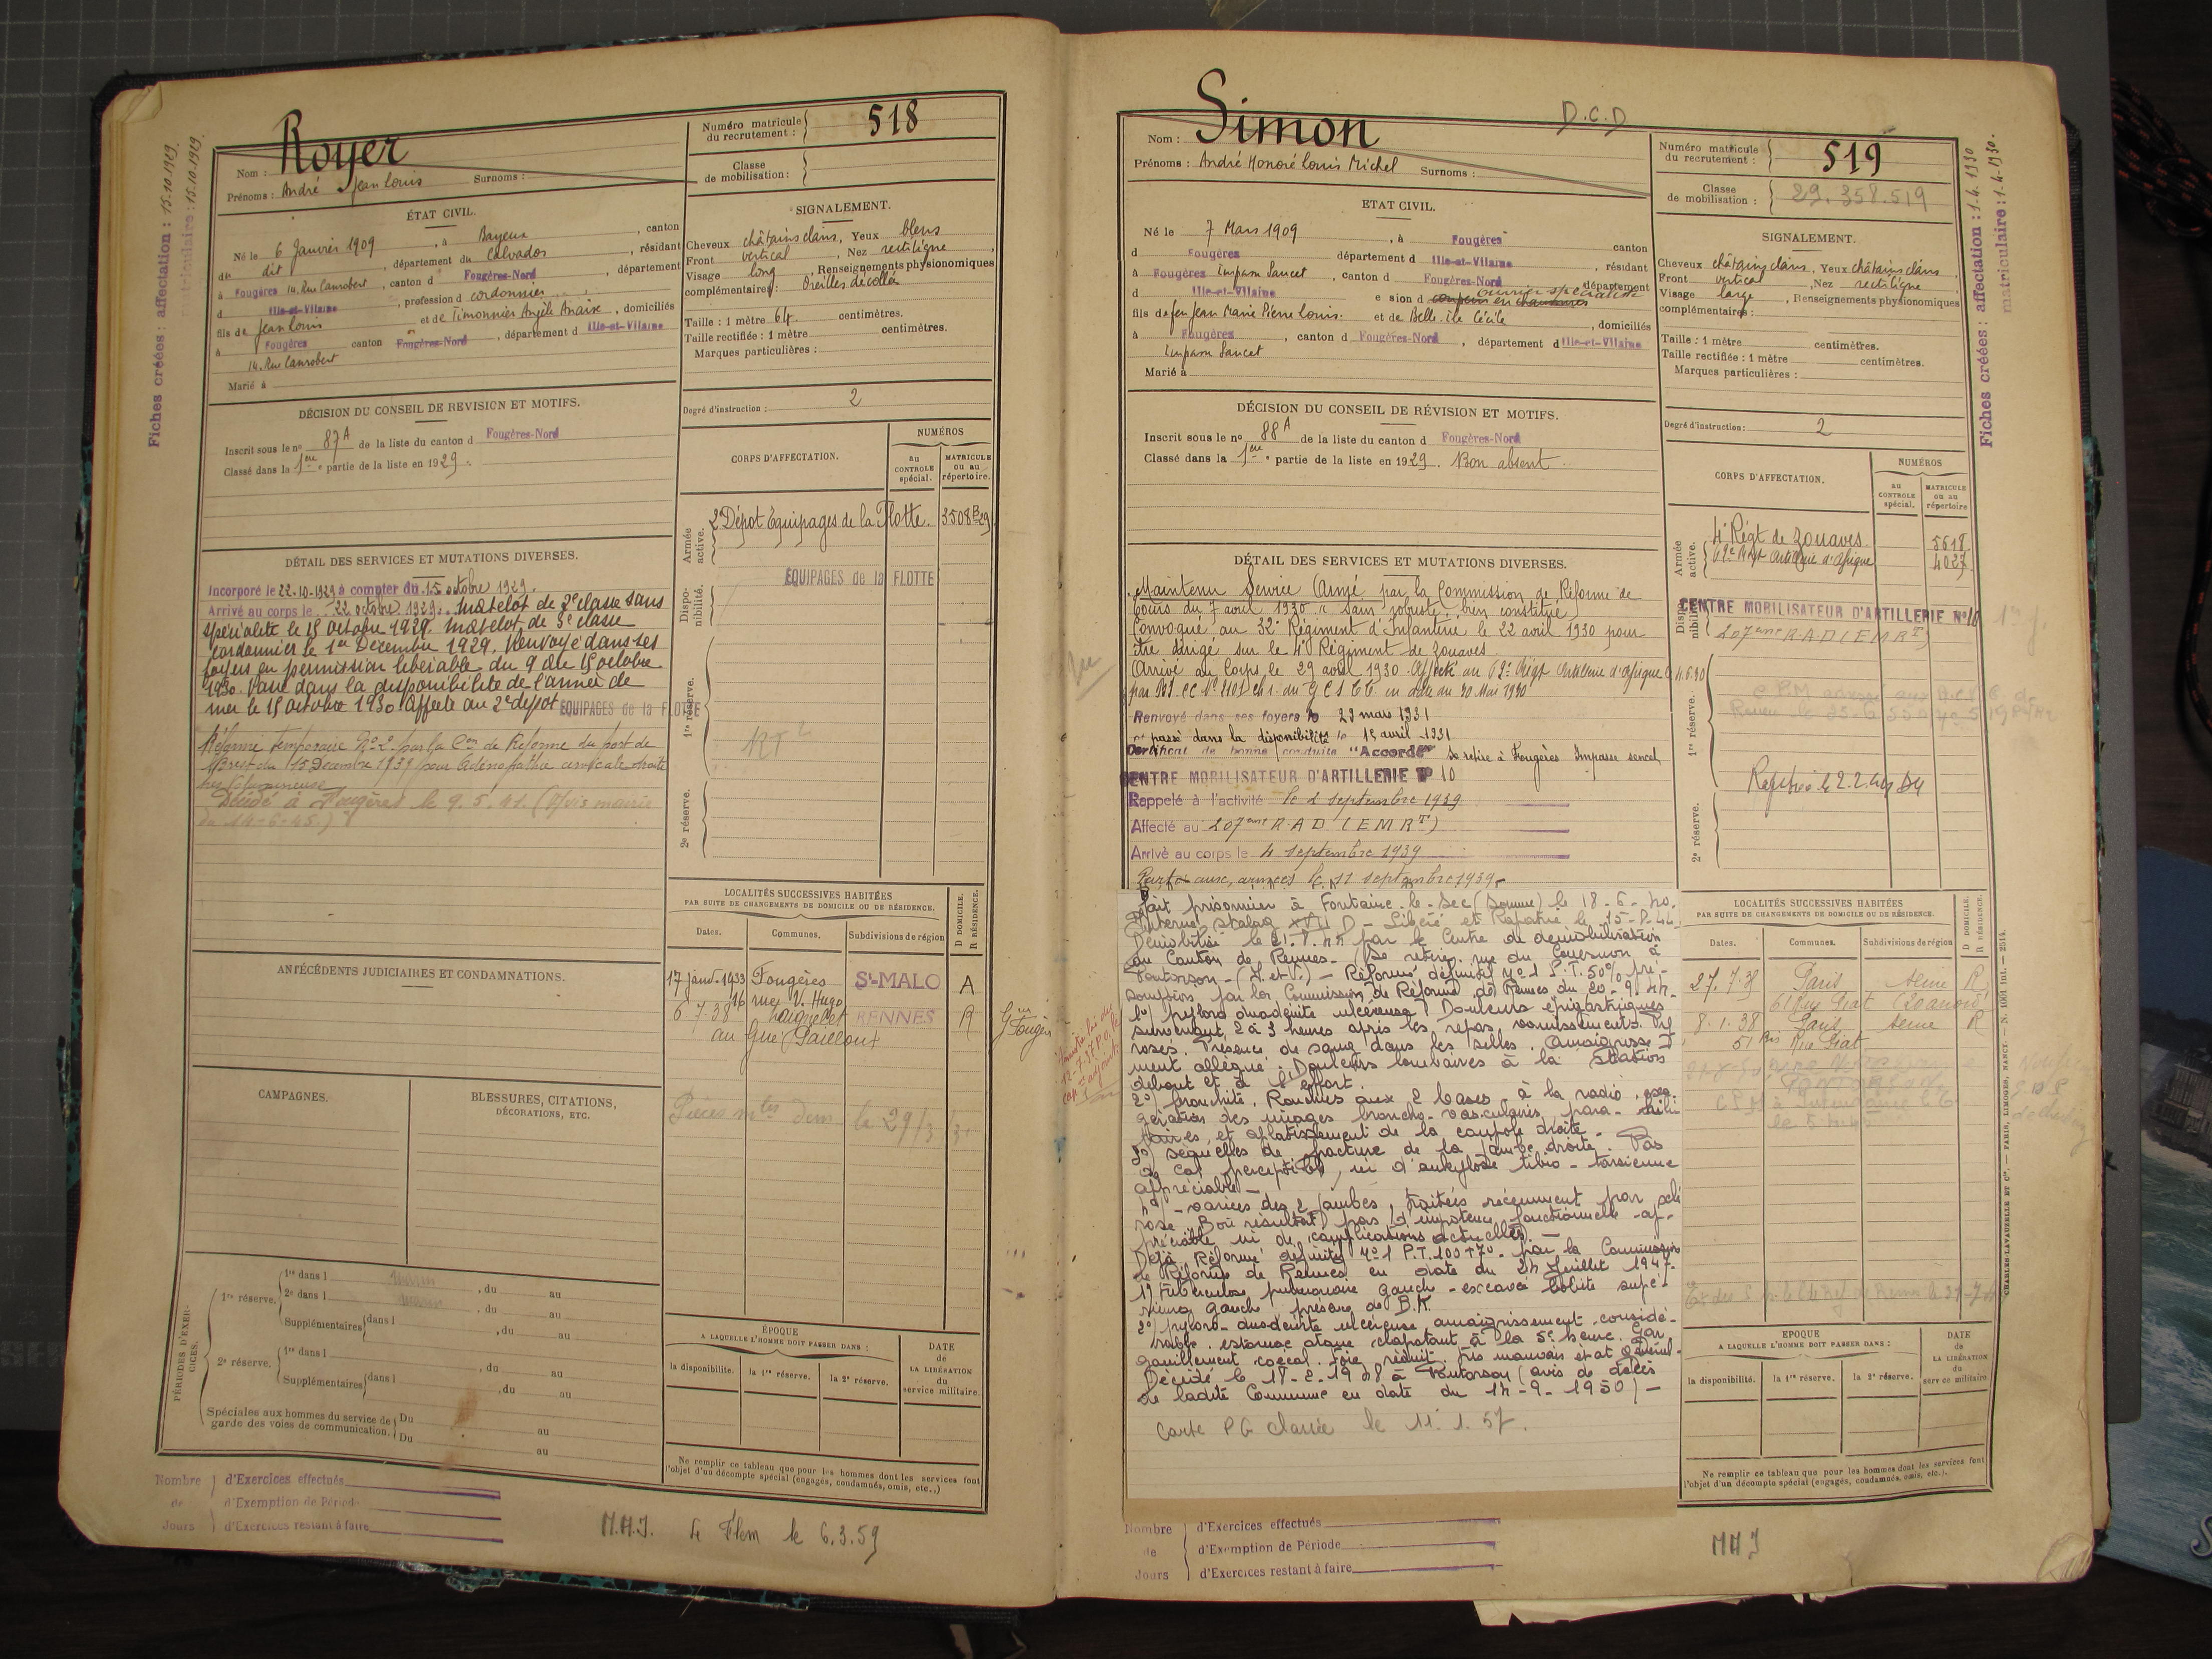 Fiches créées : affectation : 15.10.1929.
matriculaire : 15.10.1929
Nom : Royer
Prénoms : André Jean Louis Surnoms :
Numéro matricule du recrutement : 518
Classe de mobilisation :
ÉTAT CIVIL.
Né le 6 Janvier 1909, à Bayeux, canton
du dit, département du Calvados, résidant
à Fougères 14. Rue Canrobert, canton d Fougères-Nord, département
d Ille-et-Vilaine, profession d cordonnier
fils de Jean Louis et de Timonnier Angèle Anaïse, domiciliés
à Fougères canton Fougères-Nord, département d Ille-et-Vilaine
14. Rue Canrobert
Marié à
SIGNALEMENT.
Cheveux châtains clairs, Yeux bleus
Front vertical, Nez rectiligne,
Visage long, Renseignements physionomiques
complémentaires : Oreilles décollées
Taille : 1 mètre 64 centimètres.
Taille rectifiée : 1 mètre centimètres.
Marques particulières :
Degré d'instruction : 2
DÉCISION DU CONSEIL DE REVISION ET MOTIFS.
Inscrit sous le nº 87A de la liste du canton d Fougères-Nord
Classé dans la 1ère partie de la liste en 1929.
CORPS D'AFFECTATION.
NUMÉROS
au CONTROLE spécial.
MATRICULE ou au répertoire.
Armée active.
2e Dépot Equipages de la Flotte. 3508 B 29
Disponibilité.
EQUIPAGES de la FLOTTE
1re réserve.
2e réserve.
DÉTAIL DES SERVICES ET MUTATIONS DIVERSES.
Incorporé le 22-10-1929 à compter du 15 octobre 1929.
Arrivé au corps le 22 octobre 1929. Matelot de 2e classe sans
spécialité le 15 Octobre 1929. Matelot de 3e classe
cordonnier le 1er Décembre 1929. Renvoyé dans ses
foyers en permission libérable du 9 au 15 octobre
1930. Passé dans la disponibilité de l'armée de
mer le 15 Octobre 1930. Affecté au 2e dépot EQUIPAGES de la FLOTTE
Réformé temporaire Nº 2 par la Con de Réforme du port de
Brest du 15 Décembre 1939 pour Adénopathie cervicale droite
Décédé à Fougères le 9.5.41. (Avis mairie
du 14-6-45.)
ANTÉCÉDENTS JUDICIAIRES ET CONDAMNATIONS.
LOCALITÉS SUCCESSIVES HABITÉES
PAR SUITE DE CHANGEMENTS DE DOMICILE OU DE RÉSIDENCE.
Dates. Communes. Subdivisions de région
D DOMICILE.
R RÉSIDENCE.
17 janv. 1933 Fougères St-MALO A
16 rue V. Hugo
6-7-38 Laignelet RENNES R
au Gué (Pailloux
Pièces mles dem le 29/3/
CAMPAGNES.
BLESSURES, CITATIONS,
DÉCORATIONS, ETC.
PÉRIODES D'EXERCICES.
1re réserve. 1re dans l , du au
2e dans l , du au
Supplémentaires dans l , du au
2e réserve. 1re dans l , du au
Supplémentaires dans l , du au
Spéciales aux hommes du service de garde des voies de communication. Du au
Du au
ÉPOQUE
A LAQUELLE L'HOMME DOIT PASSER DANS :
la disponibilité. la 1re réserve. la 2e réserve.
DATE de LA LIBÉRATION du service militaire.
Ne remplir ce tableau que pour les hommes dont les services font
l'objet d'un décompte spécial (engagés, condamnés, omis, etc.,)
Nombre de Jours
d'Exercices effectués
d'Exemption de Période
d'Exercices restant à faire
M.H.J. Le Flem le 6.3.59
Nom : Simon
D.C.D
Prénoms : André Honoré Louis Michel Surnoms :
Numéro matricule du recrutement : 519
Classe de mobilisation : 29.358.519
Fiches créées : affectation : 1-4-1930
matriculaire : 1-4-1930.
ETAT CIVIL.
Né le 7 Mars 1909, à Fougères canton
d Fougères département d Ille-et-Vilaine, résidant
à Fougères Impasse Sancet, canton d Fougères-Nord département
d Ille-et-Vilaine e sion d coupeur en chaussures ouvrier spécialisé
fils de feu Jean Marie Pierre Louis. et de Belle-île Cécile, domiciliés
à Fougères, canton d Fougères-Nord, département d Ille-et-Vilaine
Impasse Sancet
Marié à
SIGNALEMENT.
Cheveux châtains clairs, Yeux châtains clairs,
Front vertical, Nez rectiligne
Visage large, Renseignements physionomiques
complémentaires :
Taille : 1 mètre centimètres.
Taille rectifiée : 1 mètre centimètres.
Marques particulières :
Degré d'instruction : 2
DÉCISION DU CONSEIL DE RÉVISION ET MOTIFS.
Inscrit sous le nº 88A de la liste du canton d Fougères-Nord
Classé dans la 1ère partie de la liste en 1929. Bon absent.
CORPS D'AFFECTATION.
NUMÉROS
au CONTROLE spécial.
MATRICULE ou au répertoire
Armée active.
4e Régt de Zouaves 5618
62e Régt Artillerie d'Afrique 4027
Disponibilité.
CENTRE MOBILISATEUR D'ARTILLERIE Nº 10
207ème R A D (E M R T)
1re réserve.
2e réserve.
DÉTAIL DES SERVICES ET MUTATIONS DIVERSES.
Maintenu Service Armé par la Commission de Réforme de
Tours du 7 avril 1930 "sain, robuste, bien constitué"
Convoqué au 32e Régiment d'Infanterie le 22 avril 1930 pour
être dirigé sur le 4e Régiment de Zouaves.
Arrivé au Corps le 29 avril 1930. Affecté au 62e Régt Artillerie d'Afrique
Renvoyé dans ses foyers le 29 mars 1931
et passé dans la disponibilité le 15 avril 1931
Certificat de bonne conduite "Accordé" Se retire à Fougères Impasse sencet
CENTRE MOBILISATEUR D'ARTILLERIE Nº 10
Rappelé à l'activité le 2 septembre 1939
Affecté au 207ème R A D (E M R T)
Arrivé au corps le 4 septembre 1939
Parti aux armées le 11 septembre 1939
Fait prisonnier à Fontaine-le-Sec (Somme) le 18-6-40.
Interné Stalag XVII D - Libéré et Rapatrié le 15-8-44.
Démobilisé le 21.8.44 par le Centre de démobilisation
du Canton de Rennes - (Se retire rue du Couesnon à
Pontorson - (I. et V.) - Réformé définitif nº 1 P.T. 50% pré-
somption par la Commission de Réforme de Rennes du 20-9-44.
1º/ pyloro duodénite ulcéreuse. Douleurs épigastriques
survenant 2 à 3 heures après les repas, vomissements
rosés. Présence de sang dans les selles. Amaigrisse-
ment allégué. Douleurs lombaires à la station
debout et à l'effort.
2º/ bronchite. Ronchus aux 2 bases, à la radio, exa-
gération des images broncho-vasculaires para-hili-
aires, et aplatissement de la coupole droite.
3º/ séquelles de fracture de la jambe droite. Pas
de cal perceptible, ni d'ankylose tibio-tarsienne
appréciable -
4º/ - varices des 2 jambes, traitées récemment par sclé-
rose. Bon résultat, pas d'impotence fonctionnelle ap-
préciable ni de complications actuelles. -
Déjà Réformé définitif nº 1 P.T. 100+7º. par la Commission
de Réforme de Rennes en date du 24 Juillet 1947.
1º/ tuberculose pulmonaire gauche - excavée lobite supé-
rieure gauche présence de B.K.
2º/ pyloro-duodénite ulcéreuse, amaigrissement considé-
rable. estomac atone clapotant à la 5e heure. Gar-
gouillement coecal. foie réduit. très mauvais état général.
Décédé le 18-2-1948 à Pontorson (avis de décès
de ladite Commune en date du 14-9-1950) -
Carte P G classée le 11.1.57.
LOCALITÉS SUCCESSIVES HABITÉES
PAR SUITE DE CHANGEMENTS DE DOMICILE OU DE RÉSIDENCE.
Dates. Communes. Subdivisions de région
D DOMICILE.
R RÉSIDENCE.
27.7.35 Paris Seine R
61 Rue Piat (20e arrond)
8.1.38 Paris Seine R
51 bis Rue Piat
EPOQUE
A LAQUELLE L'HOMME DOIT PASSER DANS :
la disponibilité. la 1re réserve. la 2e réserve.
DATE de LA LIBÉRATION du service militaire.
Ne remplir ce tableau que pour les hommes dont les services font
l'objet d'un décompte spécial (engagés, condamnés, omis, etc.).
CHARLES-LAVAUZELLE ET Cie. — PARIS, LIMOGES, NANCY
Nombre de Jours
d'Exercices effectués
d'Exemption de Période
d'Exercices restant à faire
M H J